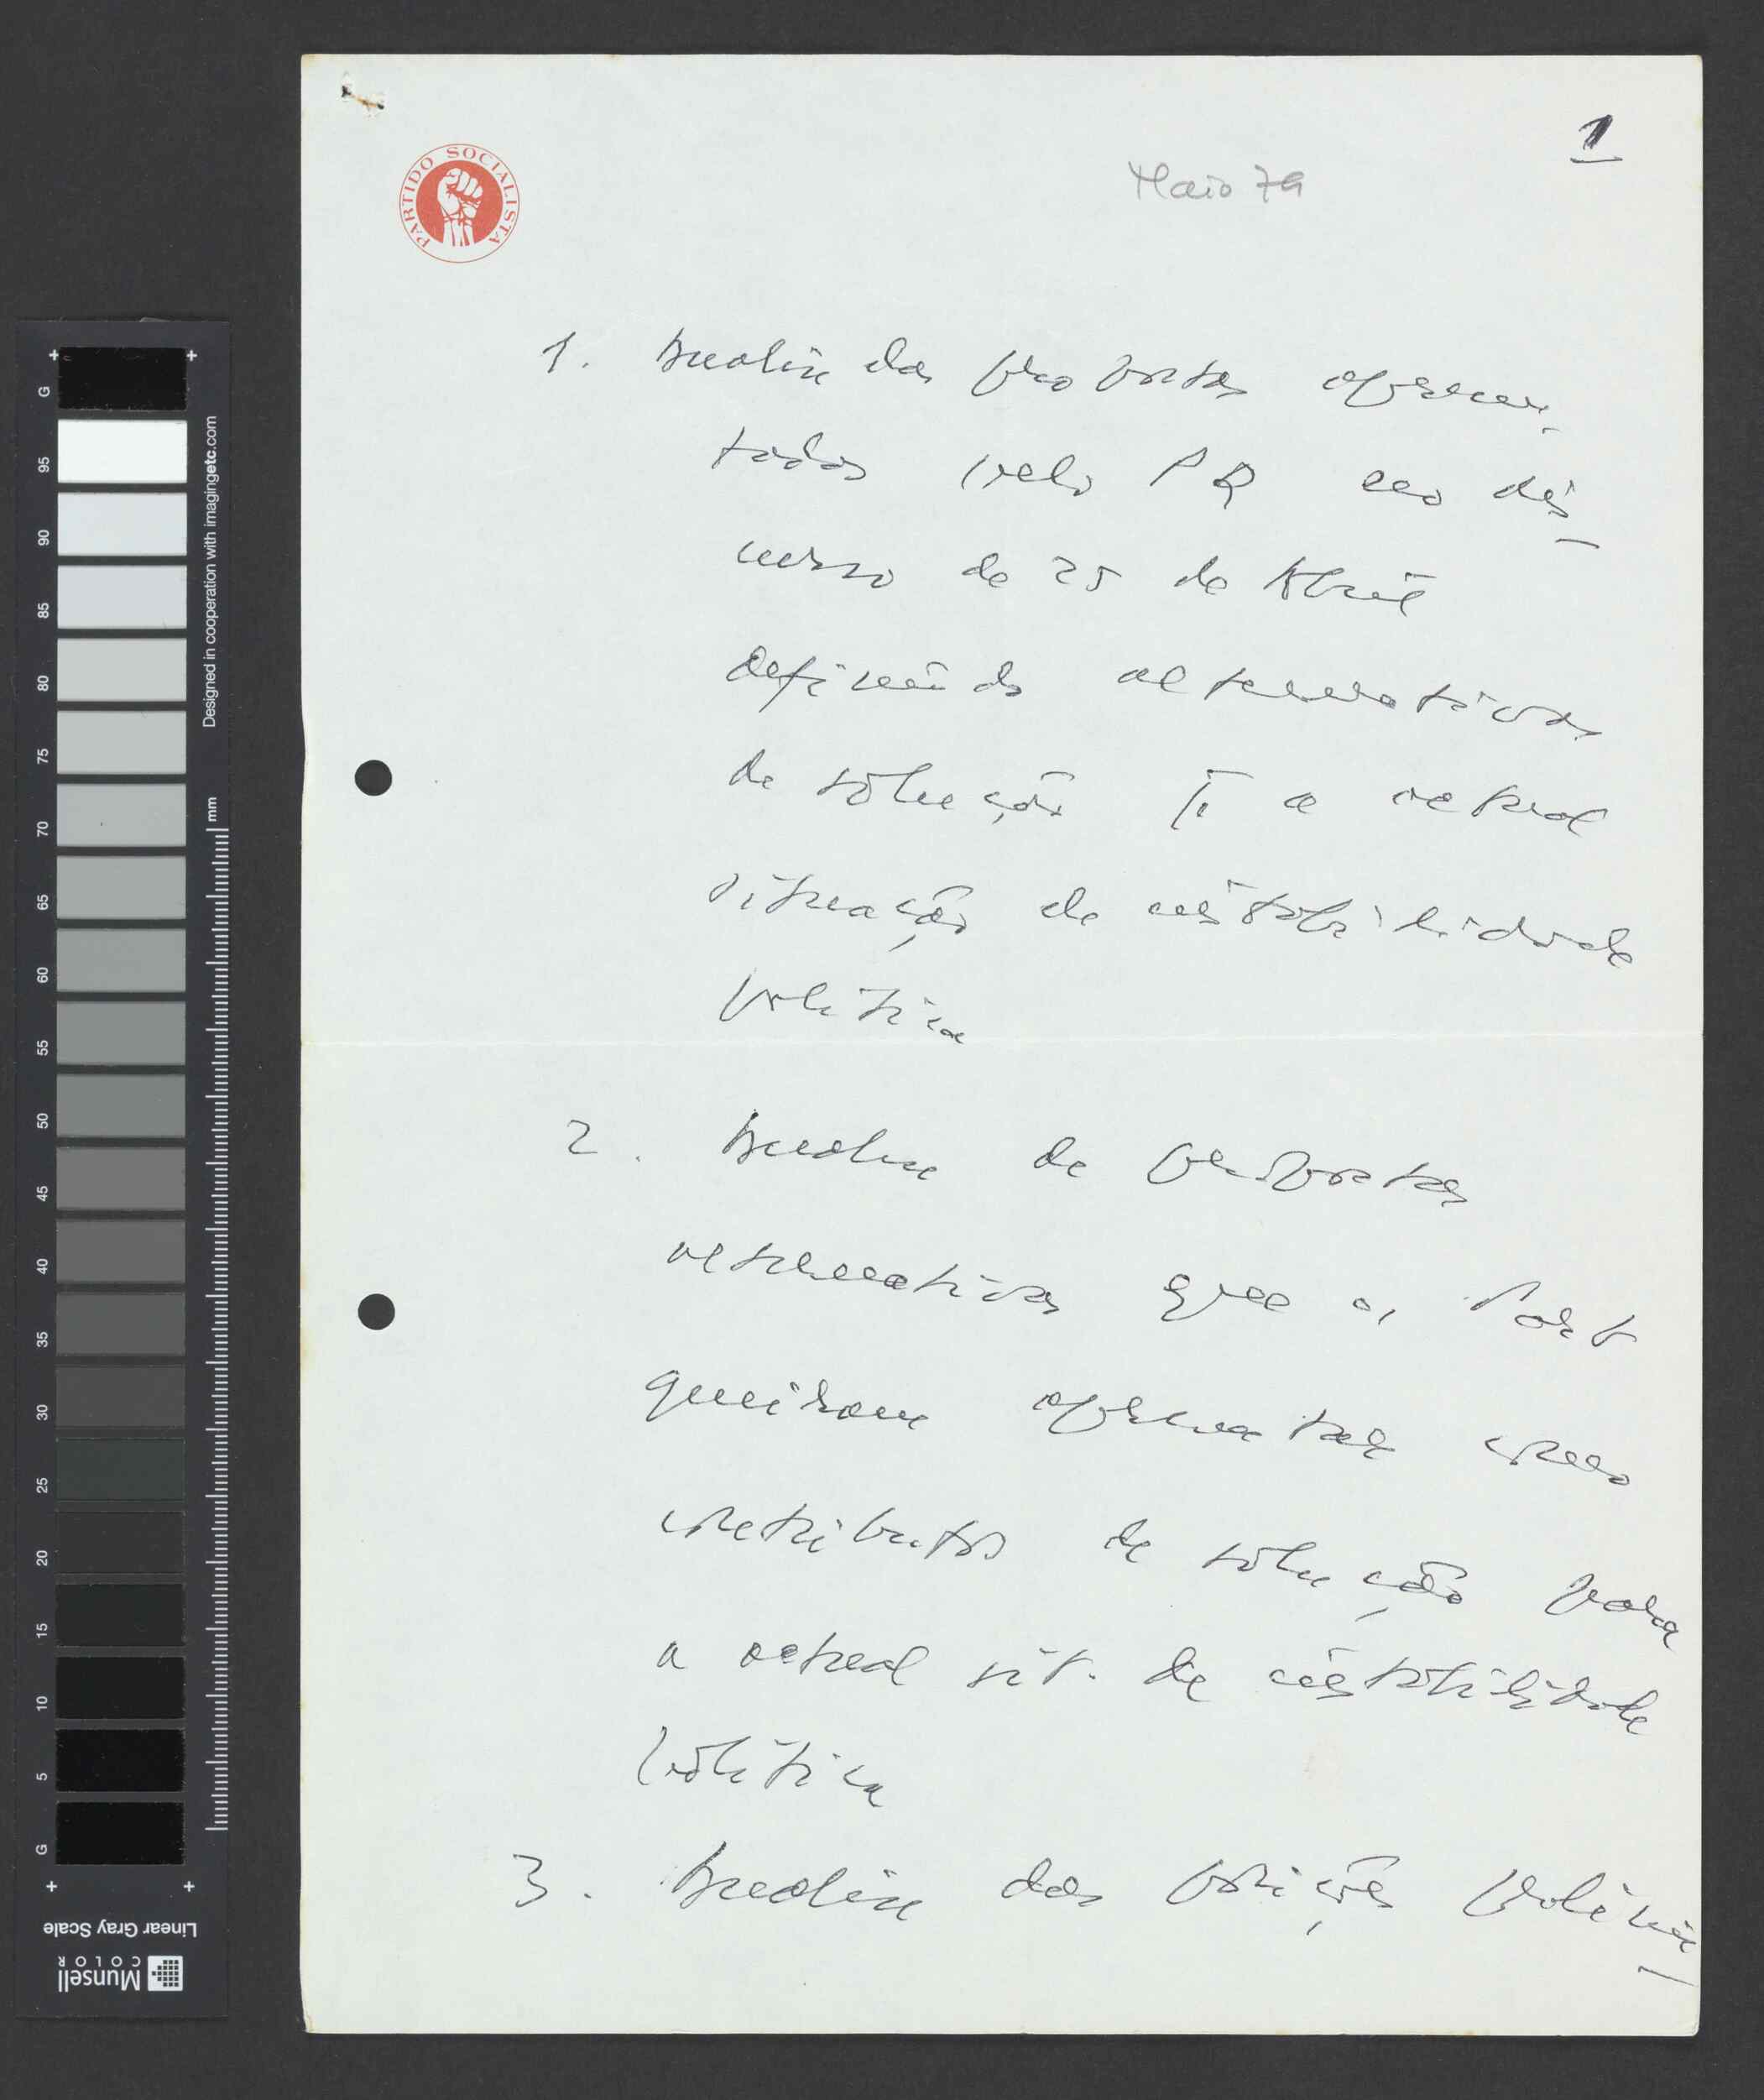 1
Maio 79
PARTIDO SOCIALISTA
1. Analise das propostas apresen-
tadas pelo PR no dis-
curso de 25 de Abril
definindo alternativas
de solução p. a actual
situação de instabilidade
politica
2. Analise de propostas
alternativas que os Part
queiram apresentar como
contributos de solução para
a actual sit. de instabilidade
politica
3. Analise das posições prelimi-
Designed in cooperation with imagingetc.com
mm
G
95
90
85
80
75
70
65
60
55
50
45
40
35
30
25
20
15
10
5
G
Linear Gray Scale
Munsell
COLOR